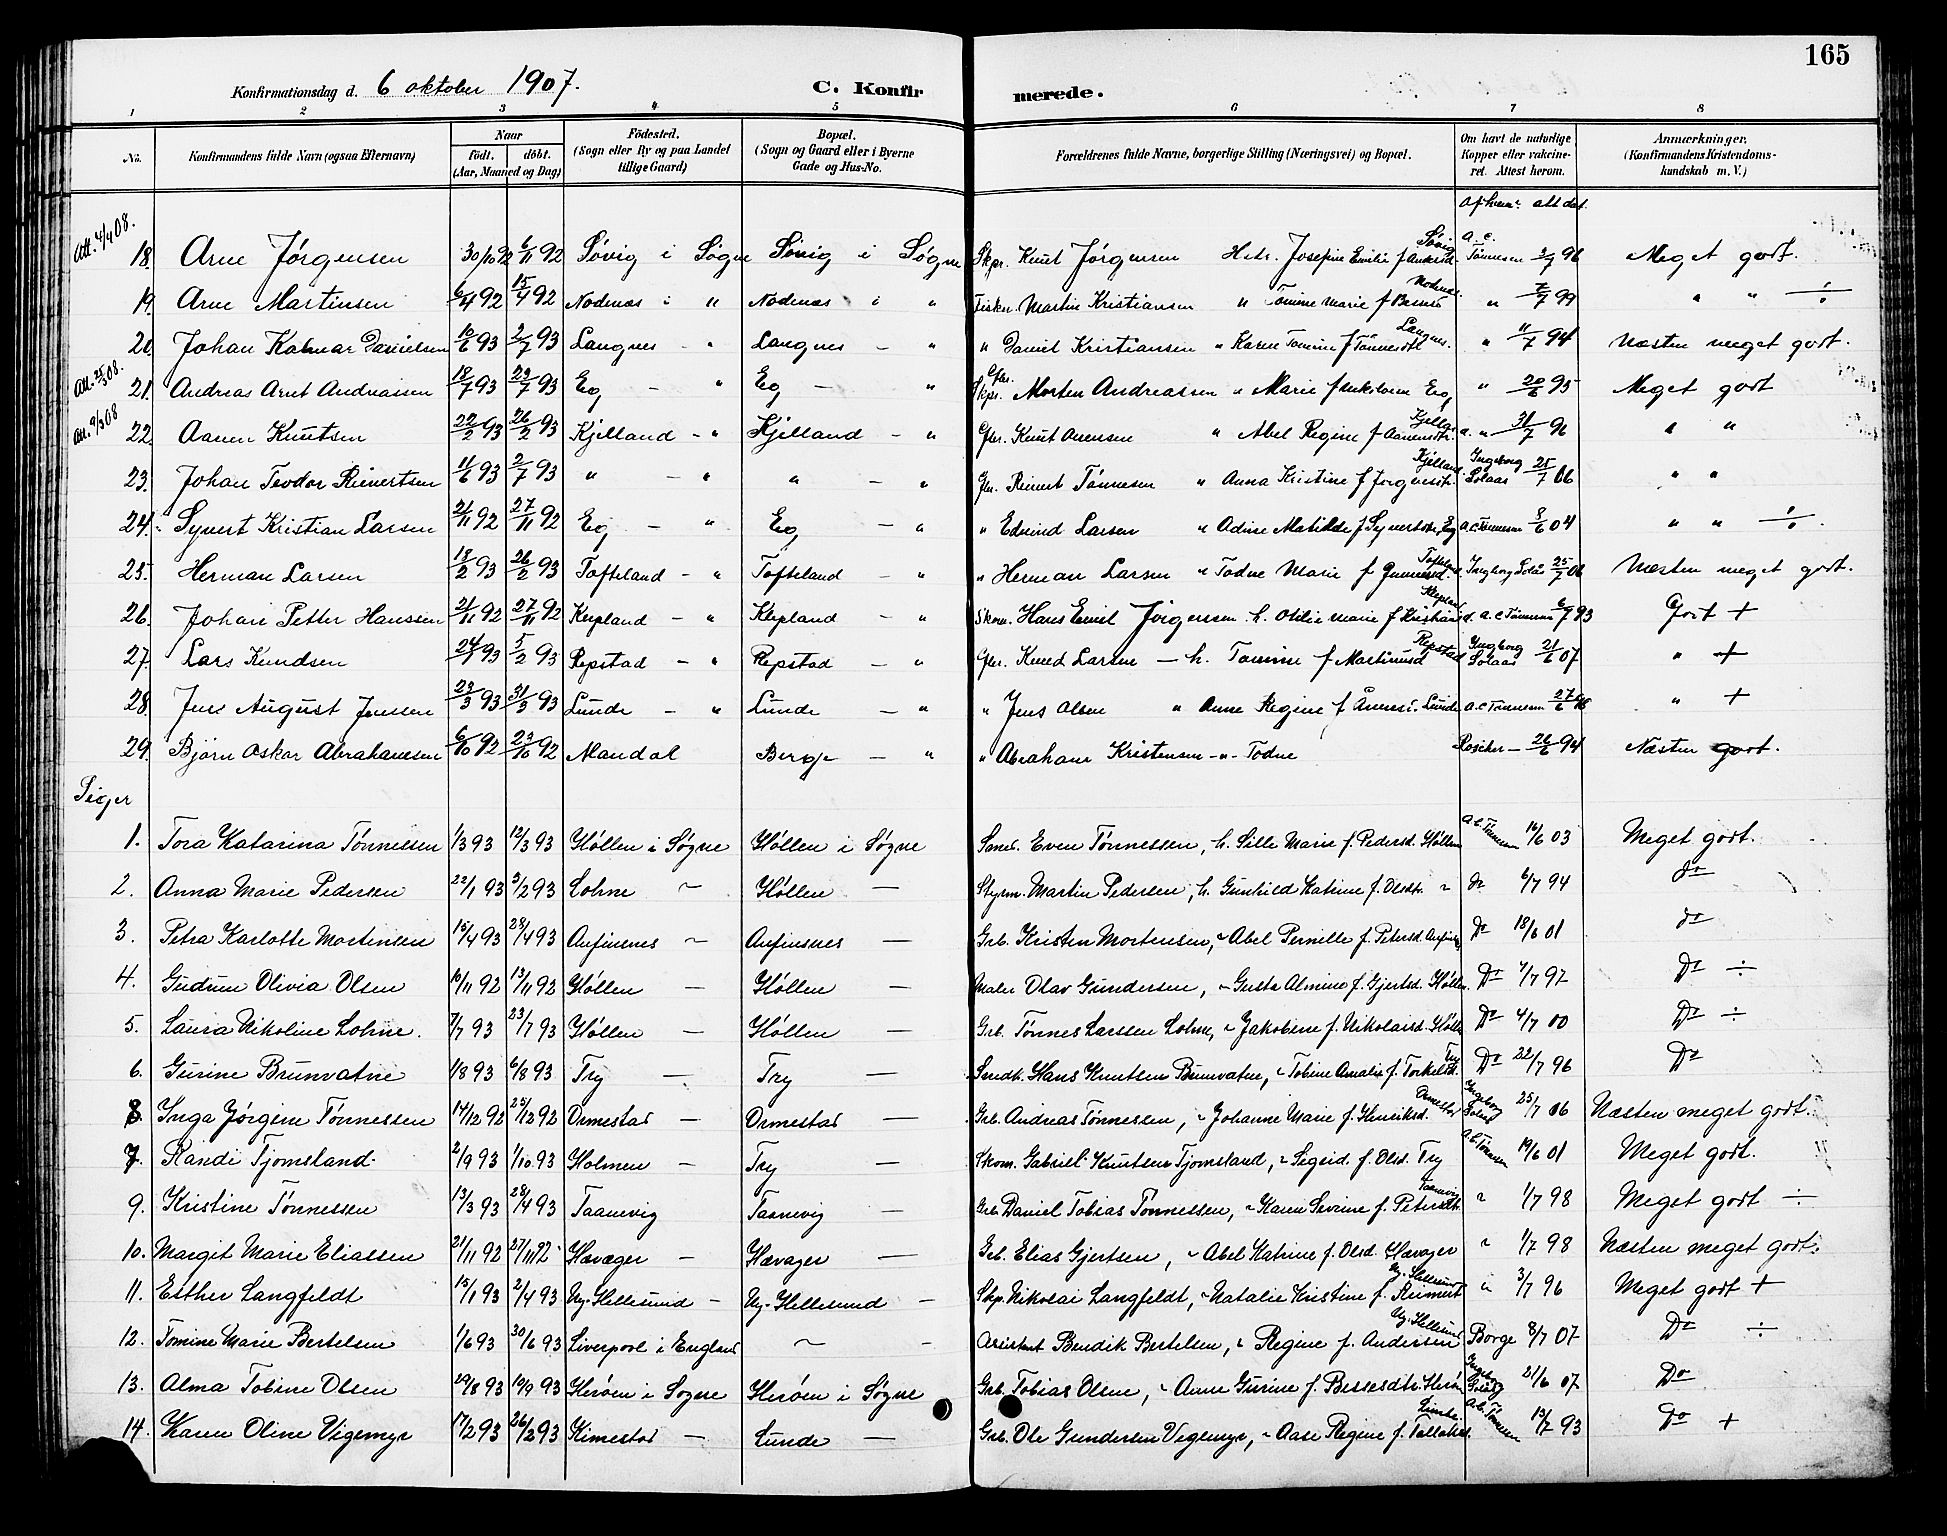 165
Konfirmationsdag d. 6 oktober 1907. C. Konfirmerede.
1 2 3 4 5 6 7 8
No. Konfirmandens fulde Navn (ogsaa Efternavn) Naar födt. döbt. (Aar, Maaned og Dag) Födested. (Sogn eller By og paa Landet tillige Gaard) Bopæl. (Sogn og Gaard eller i Byerne Gade og Hus-No. Forældrenes fulde Navne, borgerlige Stilling (Næringsvei) og Bopæl. Om havt de naturlige Kopper eller vakcineret. Attest herom. Anmærkninger. (Konfirmandens Kristendomskundskab m. V.)
Af hvem att dat.
Att. 4/4 08. 18. Arne Jörgensen 30/10 92 6/11 92 Søvig i Søgne Søvig i Søgne Skpr. Knut Jörgensen Hstr. Josefine Emilie f Søvig A. C. Tönnesen 2/7 96 Meget godt.
19. Arne Martinsen 6/4 92 15/4 92 Nodenæs i " Nodenæs i " Fisker. Martin Kristiansen " Tomine Marie f " 7/7 99 " " ÷
20. Johan Kalmar Danielsen 10/6 93 2/7 93 Langnes - " Langnes - " " Daniel Kristiansen " Karen Tomine f Tönnesdtl Langnes. " 11/7 94 Næsten meget godt.
Att. 25/3 08. 21. Andreas Arnt Andreasen 18/7 93 23/7 93 Eg - " Eg - " Skpr. Morten Andreassen " Marie f Eg " 20/6 95 Meget godt
Att. 9/3 08 22. Aanen Knutsen 22/2 93 26/2 93 Kjelland - " Kjelland - " Gbr. Knut Anensen " Abel Regine f Aanensdtr. " 31/7 96 " "
23. Johan Teodor Reinertsen 11/6 93 2/7 93 " - " " - " Gbr. Reinert Tönnesen " Anna Kristine f Jorgensdtr. Kjelland. Ingeborg Solaas 25/7 06 " "
24. Synert Kristian Larsen 21/11 92 27/11 92 Eg - " Eg - " " Edvind Larsen " Adine Matilde f Synertsdtr, Eg A.C Tönnesen 8/6 04 " " ÷
25. Herman Larsen 18/2 93 26/2 93 Tofteland - " Tofteland - " " Herman Larsen " Todne Marie f Tofteland. Ingborg Solås 25/7 06 Næsten meget godt.
26. Johan Petter Hanssen 21/11 92 27/11 92 Klepland - " Klepland - " Skom. Hans Emil Jörgensen h. Otilie Marie f Kristiansd. Klepland A. C Tönnesen 6/7 93 Godt +
27. Lars Knudsen 24/1 93 5/2 93 Repstad - " Repstad - " Gbr. Knud Larsen - h. Tomine f Martinusd Repstad Ingeborg Solaas 21/6 07 " +
28. Jens August Jenssen 23/3 93 31/3 93 Lunde - " Lunde - " " Jens Olsen " Anne Regine f Lunde A.C Tönnesen 27/6 " +
29. Björn Oskar Abrahamsen 6/10 92 23/10 92 Mandal Berge - " " Abraham Kristensen -"- Todne Roscher - 26/6 94 Næsten godt.
Piger
1. Tora Katarina Tønnessen 1/3 93 12/3 93 Høllen i Søgne Høllen i Søgne Even Tønnessen, h. Sille Marie f. Pedersd. Høllen A.C. Tönnesen 16/6 03 Meget godt.
2. Anna Marie Pedersen 22/1 93 3/2 93 Lohne ~ Høllen - Styrm. Martin Pedersen, h. Gunhild Katrine f. Olsdtr. ~ Do 6/7 94 do
3. Petra Karlotte Mortensen 15/4 93 23/4 93 Aufinsnes ~ Aufinsnes - Grb. Kristen Mortensen, ~ Abel Pernille f. Petersd. Do 18/6 01 do
4. Gudrun Olivia Olsen 10/11 92 13/11 92 Høllen - Høllen - Maler Olav Gundersen, ~ Gusta Almine f. Gjertsd. Høllen. Do 7/7 97 Do ÷
5. Laura Nikoline Lohne. 7/7 93 23/7 93 Høllen - Høllen - Grb. Tønnes Larssen Lohne, ~ Jakobine f. Nikolaisd. Do 4/7 00 Do ÷
6. Gurine Brunvatne 1/8 93 6/8 93 Try - Try - Smedm. Hans Knutsen Brunvatne, ~ Tobine Amalie f. Torkelsd. Try Do 22/7 96 Do
8. Inga Jørgine Tønnessen 14/12 92 25/12 92 Ormestad - Ormestad - Grb. Andreas Tønnessen, ~ Johanne Marie f. Henriksd. Ormestad Ingeborg Solaas 25/7 06 Næsten meget godt.
7. Randi Tjomsland 2/9 93 1/10 93 Holmen - Try - Skom. Gabriel Knutsen Tjomsland, ~ Sigrid f. Olsd. Try A.C. Tönnesen 19/6 01 Meget godt.
9. Kristine Tønnessen 13/3 93 28/4 93 Taanevig Taanevig - Grb. Daniel Tobias Tønnessen, ~ Karen Severine f. Petersdtr. Taanevig ~ 1/7 98 Meget godt ÷
10. Margit Marie Eliassen 21/11 92 27/11 92 Hævæger - Hævager - Grb. Elias Gjertsen, ~ Abel Katrine f. Olsd. Hævager ~ 1/7 98 Næsten meget godt.
11. Esther Langfeldt 15/1 93 2/4 93 Ny-Hellesund - Ny-Hellesund - Skp. Nikolai Langfeldt, ~ Natalie Kristine f. Reinert Ny. Hellesund ~ 3/7 96 Meget godt +
12. Tomine Marie Bertelsen 1/6 93 30/6 93 Liverpool i England ~ - Assistent Bendik Bertelsen, ~ Regine f. Andersen Ny. Hellesund Borge 8/7 07 Do ÷
13. Alma Tobine Olsen 29/8 93 10/9 93 Herøen i Sogne Herøen i Søgne Grb. Tobias Olsen, ~ Anne Gurine f. Herøen Ingeborg Solaas 21/6 07 Do
14. Karen Oline Vigemyr 17/2 93 26/2 93 Kimestad - Lunde - Grb. Ole Gundersen Vigemyr, ~ Aase Regine f. Lunde. A.C. Tönnesen 13/7 93 Do +